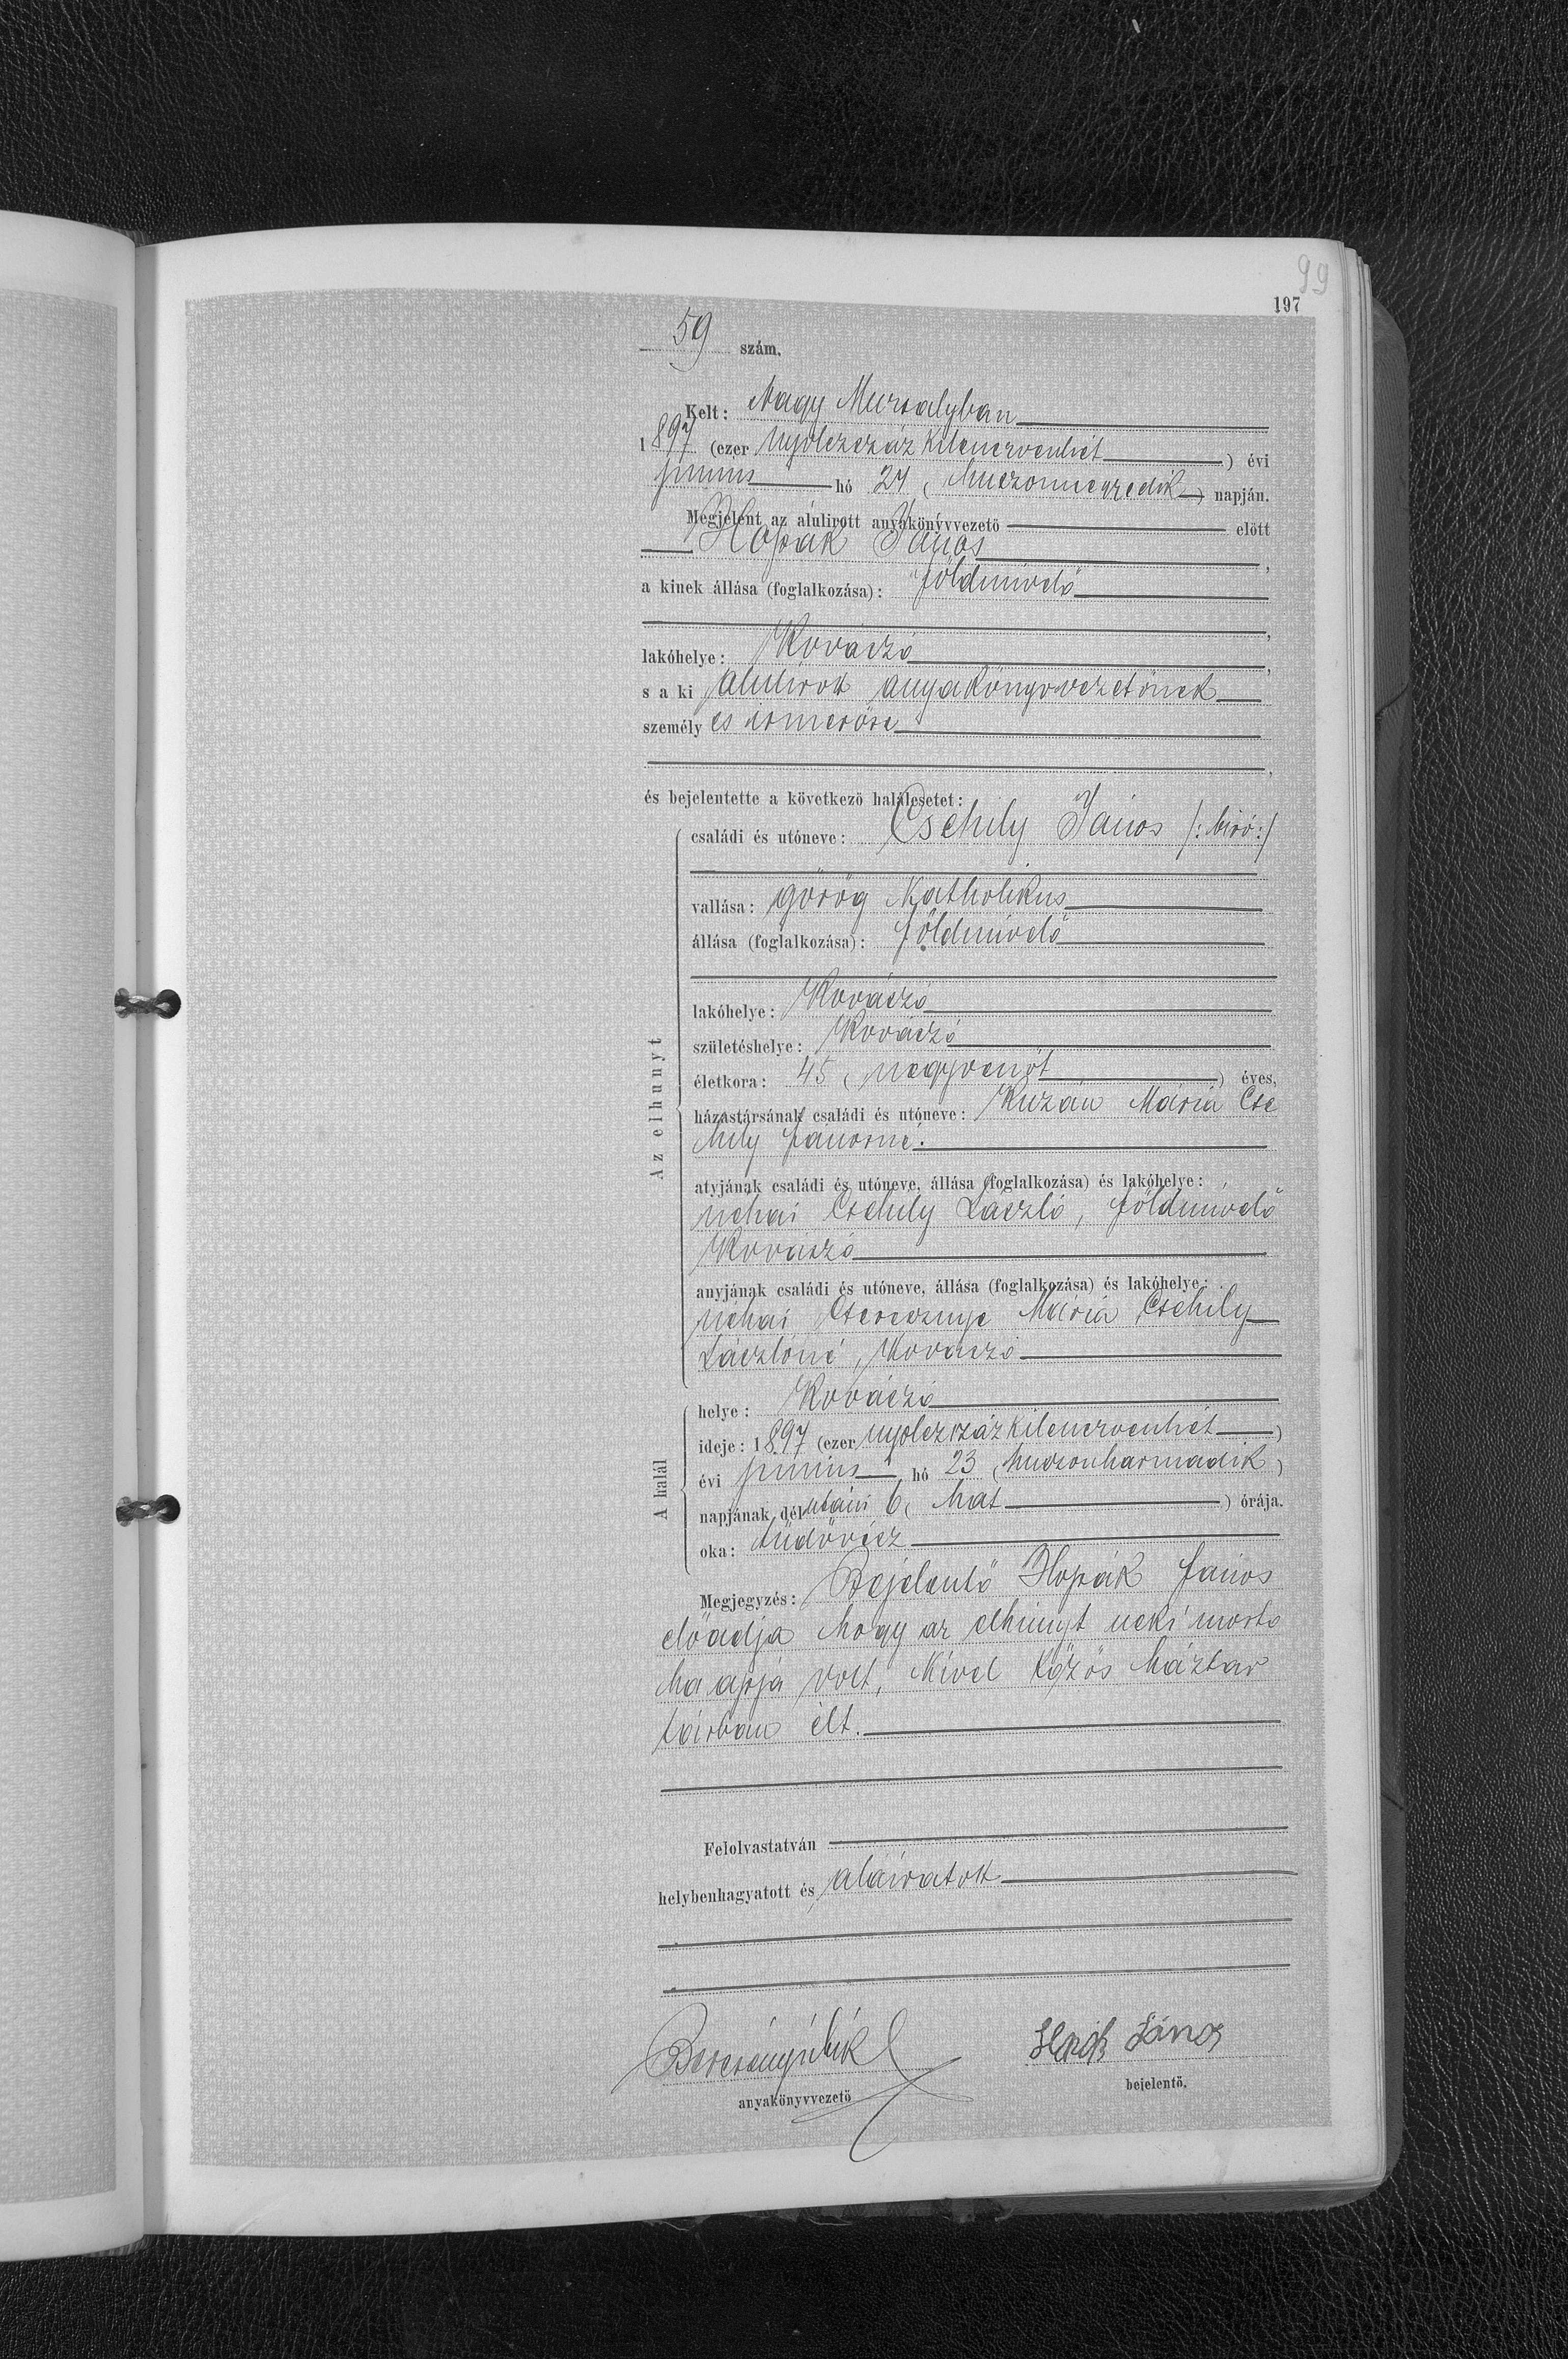 99
197
59 szám.
Kelt: Nagy Muzsalyban
1897 (ezer nyolczszáz kilenczvenhét) évi
junius hó 24 (huszonnegyedik) napján.
Megjelent az alulirott anyakönyvvezető előtt
János
a kinek állása (foglalkozása): földmivelő
lakóhelye: Kovászó
s a ki alulirott anyakönyvvezetőnek
személyes ismerőse
és bejelentette a következő halálesetet:
Az elhunyt
családi és utóneve: Csehily János /: biró :/
vallása: görög katholikus
állása (foglalkozása): földmivelő
lakóhelye: Kovászó
születéshelye: Kovászó
életkora: 45 (negyvenöt) éves,
házastársának családi és utóneve: Kuzán Mária Cse
hily Jánosné.
atyjának családi és utóneve, állása (foglalkozása) és lakóhelye:
néhai Csehily László, földmivelő
Kovászó
anyjának családi és utóneve, állása (foglalkozása) és lakóhelye:
néhai Cseresznye Mária Csehily
Lászlóné, Kovászó
A halál
helye: Kovászó
ideje: 1897 (ezer nyolczszáz kilenczvenhét)
évi junius hó 23 (huszonharmadik)
napjának délutáni 6 (hat) órája.
oka: tüdővész
Megjegyzés: Bejelentő János
előadja hogy az elhunyt neki mosto
ha apja volt, kivel közös háztar
tásban élt.
Felolvastatván
helybenhagyatott és aláiratott
anyakönyvvezető
János
bejelentő.